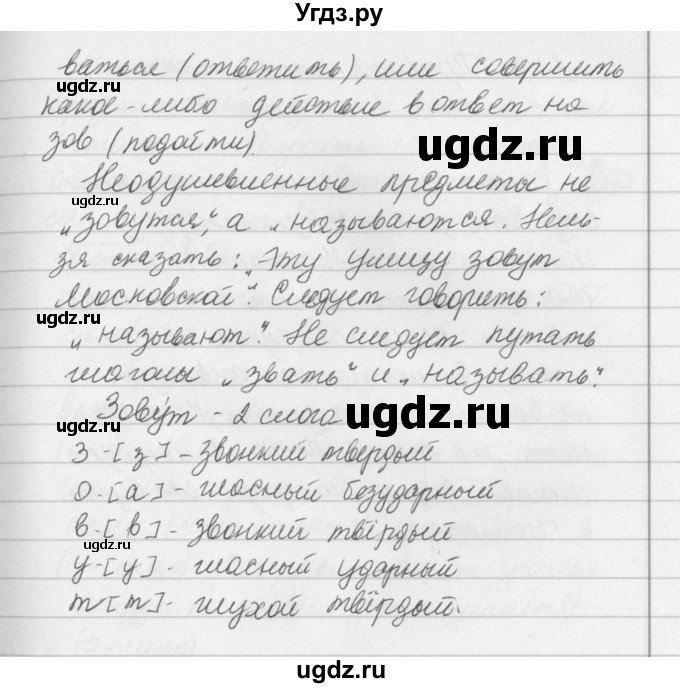 Угдз.ру
ваться (ответить), или совершить
какое-либо действие в ответ на
зов (подойти).
ugdz.ru
ugdz.ru
Неодушевленные предметы не
„зовутся“, а „называются. Нель-
ugdz.ru
зя сказать: „Эту улицу зовут
Московской“. Следует говорить:
ugdz.ru
„называют“. Не следует путать
глаголы „звать“ и „называть“.
Зову́т - 2 слога
ugdz.ru
з - [з] - звонкий твердый
о - [а] - гласный безударный
в - [в] - звонкий твёрдый
ugdz.ru
у - [у] - гласный ударный
т - [т] - глухой твёрдый.
ugdz.ru